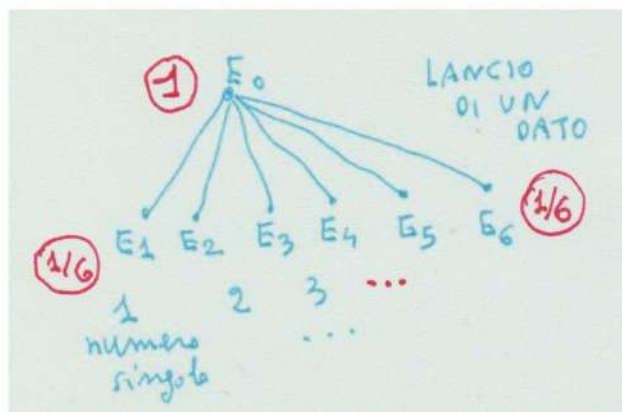 1
E0
LANCIO
DI UN
DATO
E1 E2 E3 E4 E5 E6
1/6
1/6
1 2 3 ...
numero ...
singolo